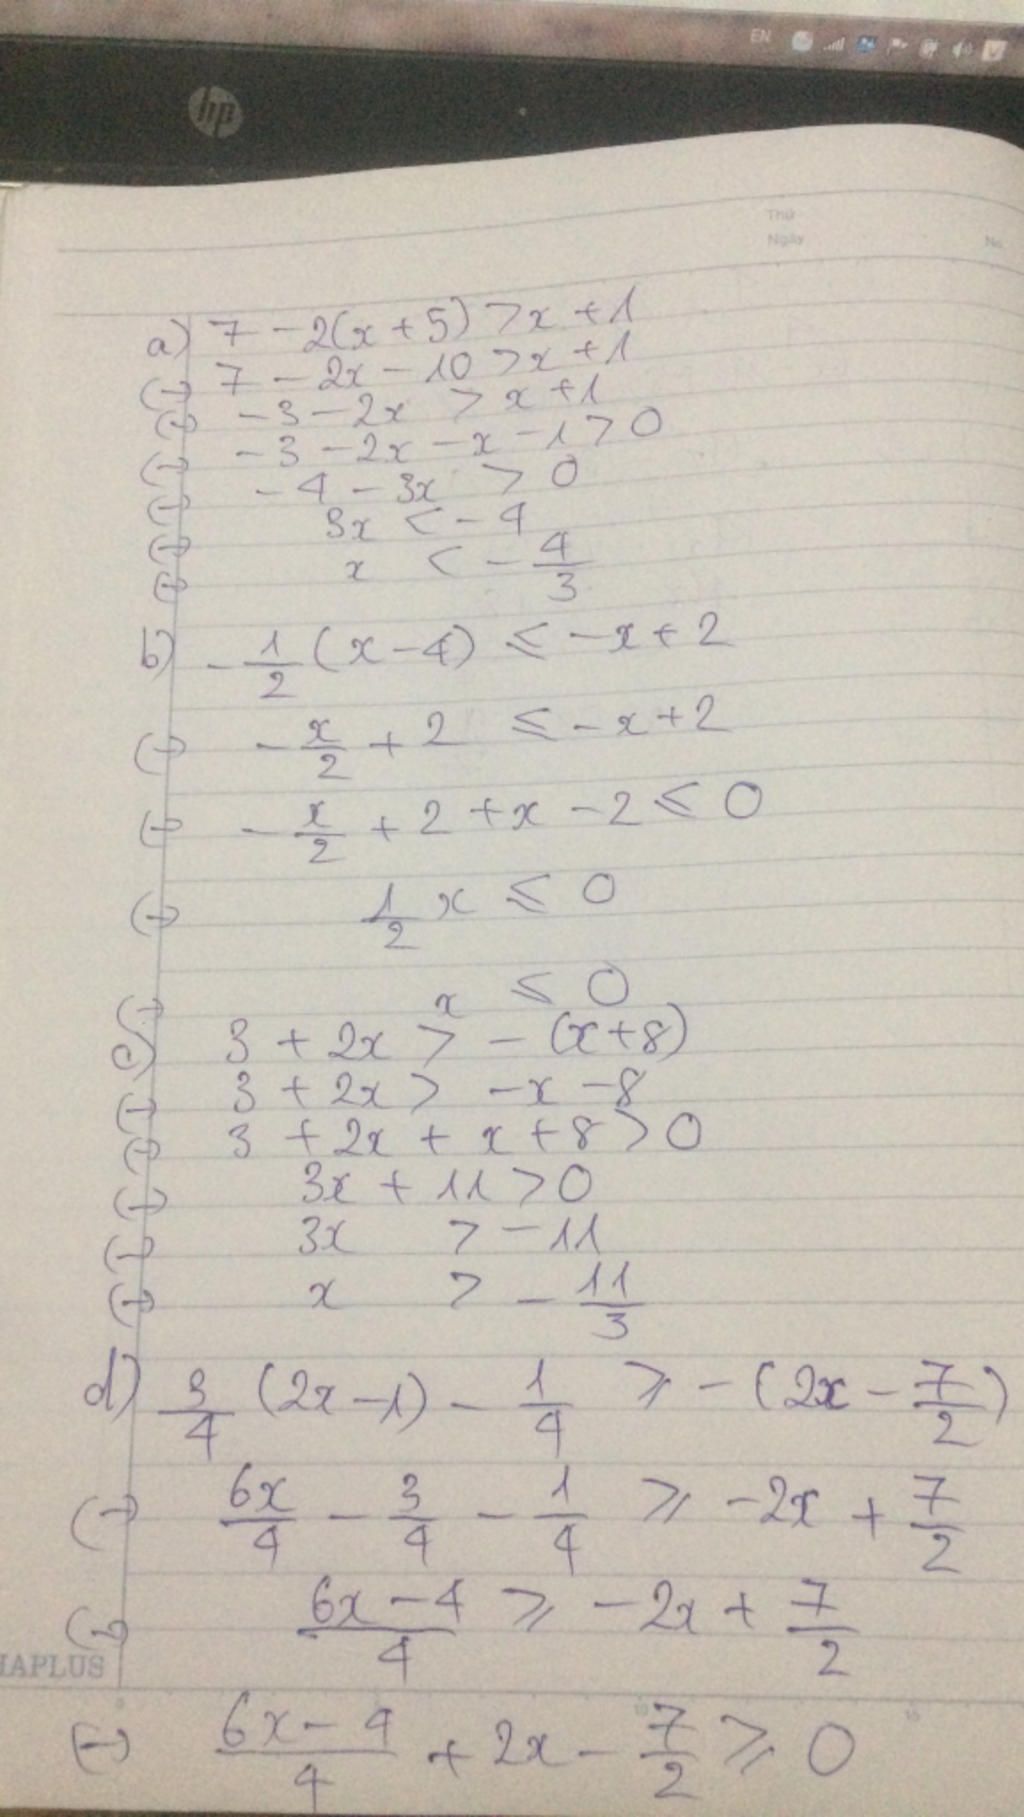 EN
hp
Thứ
Ngày
No.
a) 7 - 2(x + 5) > x + 1
(-) 7 - 2x - 10 > x + 1
(-) - 3 - 2x > x + 1
(-) - 3 - 2x - x - 1 > 0
(-) - 4 - 3x > 0
(-) 3x < - 4
(-) x < - 4/3
b) - 1/2 (x - 4) ⩽ - x + 2
(-) - x/2 + 2 ⩽ - x + 2
(-) - x/2 + 2 + x - 2 ⩽ 0
(-) 1/2 x ⩽ 0
(-) x ⩽ 0
c) 3 + 2x > - (x + 8)
(-) 3 + 2x > - x - 8
(-) 3 + 2x + x + 8 > 0
(-) 3x + 11 > 0
(-) 3x > - 11
(-) x > - 11/3
d) 3/4 (2x - 1) - 1/4 ⩾ - (2x - 7/2)
(-) 6x/4 - 3/4 - 1/4 ⩾ - 2x + 7/2
(-) (6x - 4)/4 ⩾ - 2x + 7/2
HAPLUS
(-) (6x - 4)/4 + 2x - 7/2 ⩾ 0